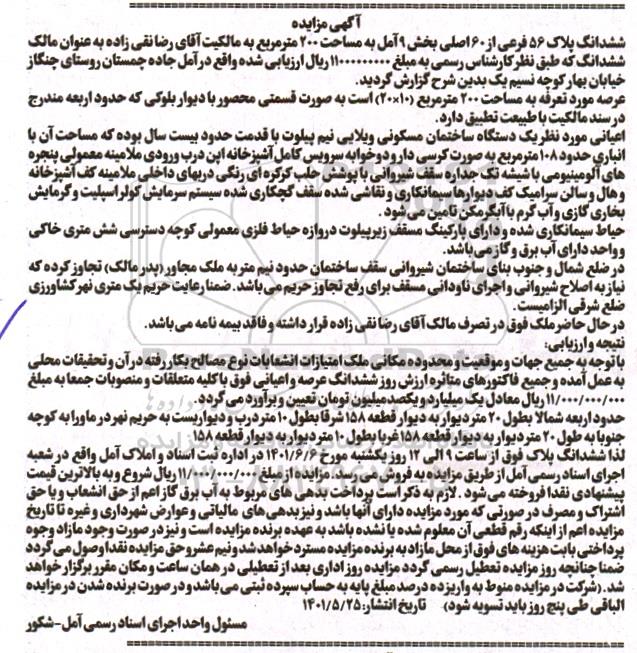 آگهی مزایده
ششدانگ پلاک ۵۶ فرعی از ۶۰ اصلی بخش ۹ آمل به مساحت ۲۰۰ مترمربع به مالکیت آقای رضا نقی زاده به عنوان مالک
ششدانگ که طبق نظر کارشناس رسمی به مبلغ ۱۱۰۰۰۰۰۰۰۰۰ ریال ارزیابی شده واقع در آمل جاده چمستان روستای چنگاز
خیابان بهار کوچه نسیم یک بدین شرح گزارش گردید.
عرصه مورد تعرفه به مساحت ۲۰۰ مترمربع (۱۰×۲۰) است به صورت قسمتی محصور با دیوار بلوکی که حدود اربعه مندرج
در سند مالکیت با طبیعت تطبیق دارد.
اعیانی مورد نظر یک دستگاه ساختمان مسکونی ویلایی نیم پیلوت با قدمت حدود بیست سال بوده که مساحت آن با
انباری حدود ۱۰۸ مترمربع به صورت کرسی دار و دوخوابه سرویس کامل آشپزخانه اپن درب ورودی ملامینه معمولی پنجره
های آلومینیومی با شیشه تک جداره سقف شیروانی با پوشش حلب کرکره ای رنگی دربهای داخلی ملامینه کف آشپزخانه
وهال و سالن سرامیک کف دیوارها سیمانکاری و نقاشی شده سقف گچکاری شده سیستم سرمایش کولر اسپلیت و گرمایش
بخاری گازی و آب گرم با آبگرمکن تامین می شود.
حیاط سیمانکاری شده و دارای پارکینگ مسقف زیرپیلوت دروازه حیاط فلزی معمولی کوچه دسترسی شش متری خاکی
و واحد دارای آب برق و گاز می باشد.
در ضلع شمال و جنوب بنای ساختمان شیروانی سقف ساختمان حدود نیم متر به ملک مجاور (پدر مالک) تجاوز کرده که
نیاز به اصلاح شیروانی و اجرای ناودانی مسقف برای رفع تجاوز حریم می باشد. ضمنا رعایت حریم یک متری نهر کشاورزی
ضلع شرقی الزامیست.
در حال حاضر ملک فوق در تصرف مالک آقای رضا نقی زاده قرار داشته و فاقد بیمه نامه می باشد.
نتیجه و ارزیابی:
با توجه به جمیع جهات و موقعیت و محدوده مکانی ملک امتیازات انشعابات نوع مصالح بکار رفته در آن و تحقیقات محلی
به عمل آمده و جمیع فاکتورهای متاثره ارزش روز ششدانگ عرصه و اعیانی فوق با کلیه متعلقات و منصوبات جمعا به مبلغ
۱۱/۰۰۰/۰۰۰/۰۰۰ ریال معادل یک میلیارد و یکصد میلیون تومان تعیین و برآورد می گردد.
حدود اربعه شمالا بطول ۲۰ متر دیوار به دیوار قطعه ۱۵۸ شرقا بطول ۱۰ متر درب و دیواریست به حریم نهر در ماورا به کوچه
جنوبا به طول ۲۰ متر دیوار به دیوار قطعه ۱۵۸ غربا بطول ۱۰ متر دیوار به دیوار قطعه ۱۵۸
لذا ششدانگ پلاک فوق از ساعت ۹ الی ۱۲ روز یکشنبه مورخ ۱۴۰۱/۶/۶ در اداره ثبت اسناد و املاک آمل واقع در شعبه
اجرای اسناد رسمی آمل از طریق مزایده به فروش می رسد. مزایده از مبلغ ۱۱/۰۰۰/۰۰۰/۰۰۰ ریال شروع و به بالاترین قیمت
پیشنهادی نقدا فروخته می شود. لازم به ذکر است پرداخت بدهی های مربوط به آب برق گاز اعم از حق انشعاب و یا حق
اشتراک و مصرف در صورتی که مورد مزایده دارای آنها باشد و نیز بدهی های مالیاتی و عوارض شهرداری و غیره تا تاریخ
مزایده اعم از اینکه رقم قطعی آن معلوم شده یا نشده باشد به عهده برنده مزایده است و نیز در صورت وجود مازاد وجوه
پرداختی بابت هزینه های فوق از محل مازاد به برنده مزایده مسترد خواهد شد و نیم عشر و حق مزایده نقدا وصول می گردد
ضمنا چنانچه روز مزایده تعطیل رسمی گردد مزایده روز اداری بعد از تعطیلی در همان ساعت و مکان مقرر برگزار خواهد
شد. (شرکت در مزایده منوط به واریز ده درصد مبلغ پایه به حساب سپرده ثبتی می باشد و در صورت برنده شدن در مزایده
الباقی طی پنج روز باید تسویه شود) تاریخ انتشار: ۱۴۰۱/۵/۲۵
مسئول واحد اجرای اسناد رسمی آمل-شکور